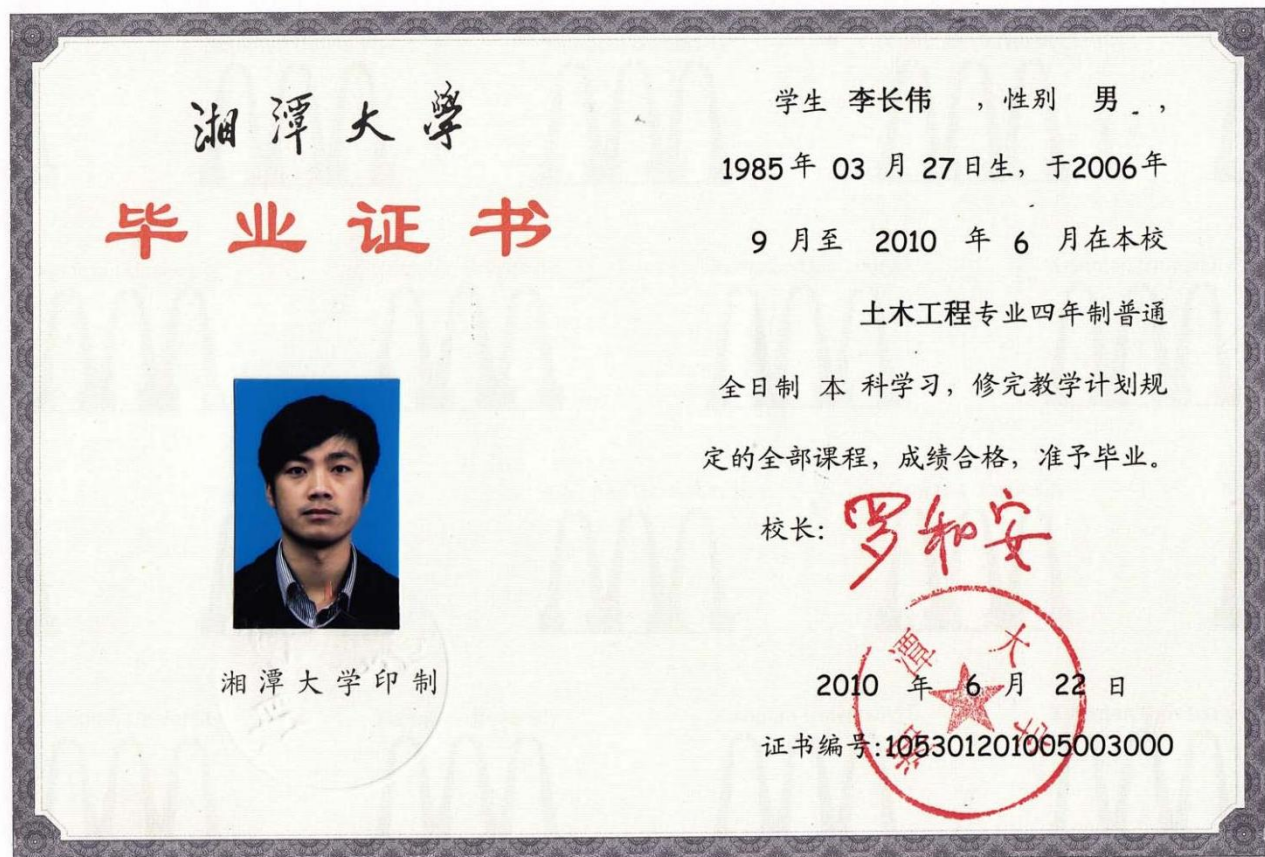 湘潭大學
毕业证书
湘潭大学印制
学生 李长伟 ，性别 男 ，
1985年 03 月 27日生，于2006年
9 月至 2010 年 6 月在本校
土木工程专业四年制普通
全日制 本 科学习，修完教学计划规
定的全部课程，成绩合格，准予毕业。
校长: 罗和安
湘潭大学
2010 年 6 月 22 日
证书编号:105301201005003000